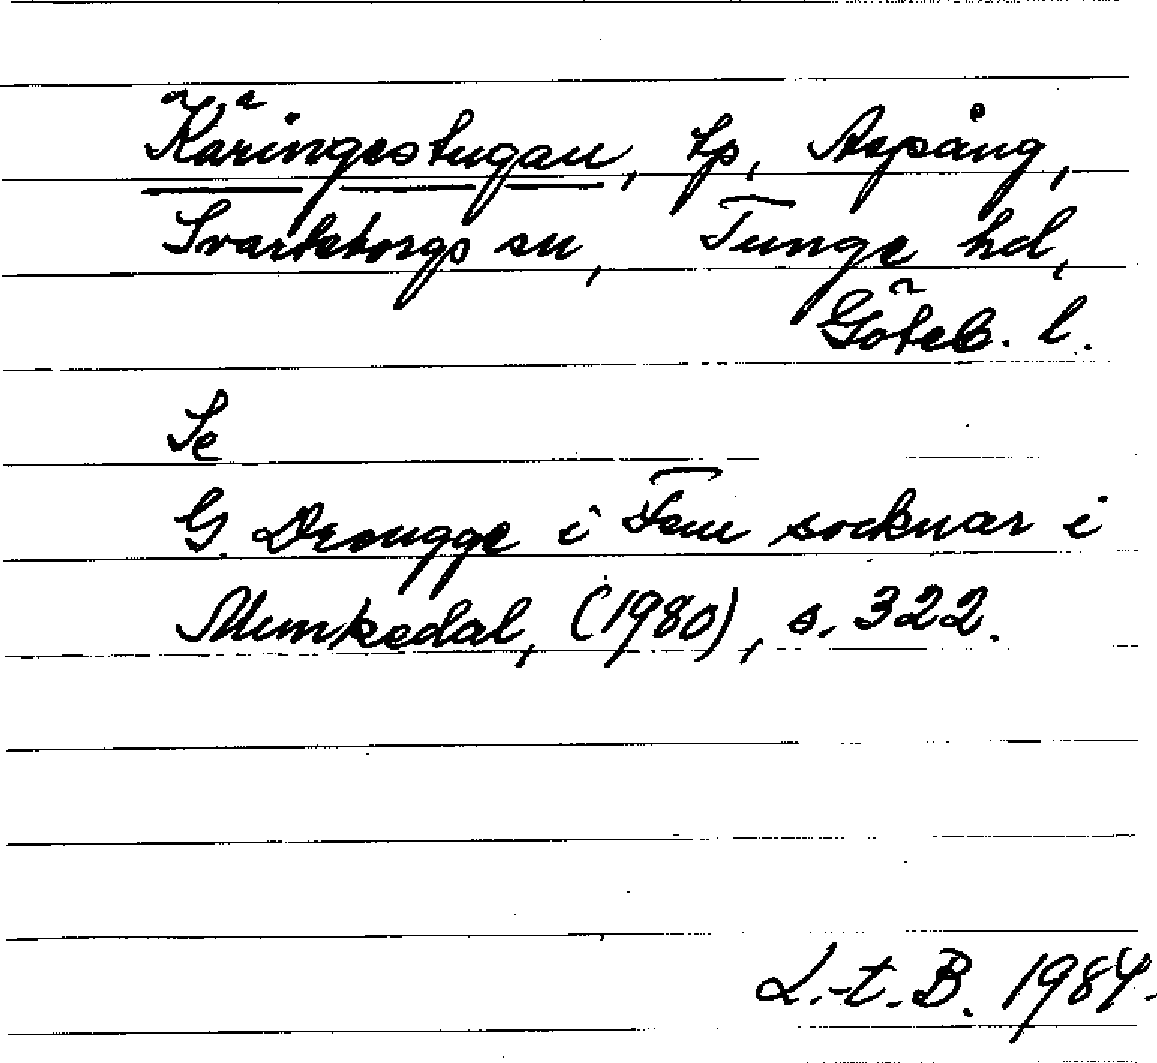 Käringestugan, tp, Aspång,
Svarteborgs sn, Tunge hd,
Göteb. l.
Se
G. Drougge i Fem socknar i
Munkedal, (1980), s. 322.
L.-t. B. 1984.